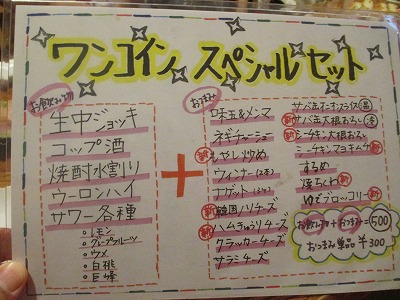 ワンコイン スペシャルセット
お飲み物
生中ジョッキ
コップ酒
焼酎水割り
ウーロンハイ
サワー各種
・レモン
・グレープフルーツ
・ウメ
・白桃
・巨峰
+
おつまみ
味玉&メンマ
ネギチャーシュー
新 もやし炒め
ウィンナー(2本)
ナゲット
新 韓国ノリチーズ
新 ハムきゅうりチーズ
クラッカーチーズ
サラミチーズ
サバ缶オニオンスライス 新
新 サバ缶大根おろし
新 シーチキン大根おろし
シーチキンマヨキムチ 新
するめ
焼ちくわ 新
ゆでブロッコリー 新
お飲み物+おつまみ=500
おつまみ単品 ¥300